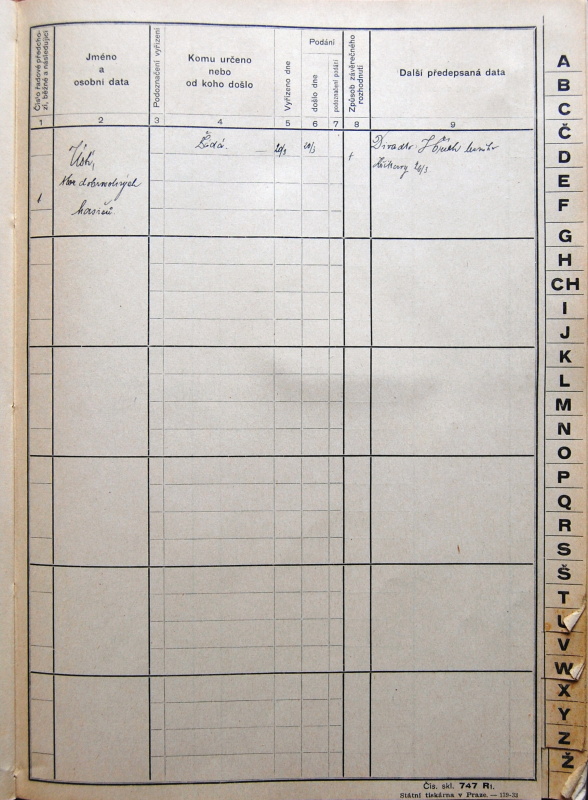 Číslo řadové předcho-
zí, běžné a následující
Jméno
a
osobní data
Podoznačení vyřízení
Komu určeno
nebo
od koho došlo
Vyřízeno dne
Podání
došlo dne
podoznačení podání
Způsob závěrečného
rozhodnutí
Další předepsaná data
1 2 3 4 5 6 7 8 9
1
sbor dobrovolných
hasičů.
Žádá.
20/3
20/3
Divadlo
20/3
A
B
C
Č
D
E
F
G
H
CH
I
J
K
L
M
N
O
P
Q
R
S
Š
T
U
V
W
X
Y
Z
Ž
Čís. skl. 747 R1.
Státní tiskárna v Praze. — 159-32